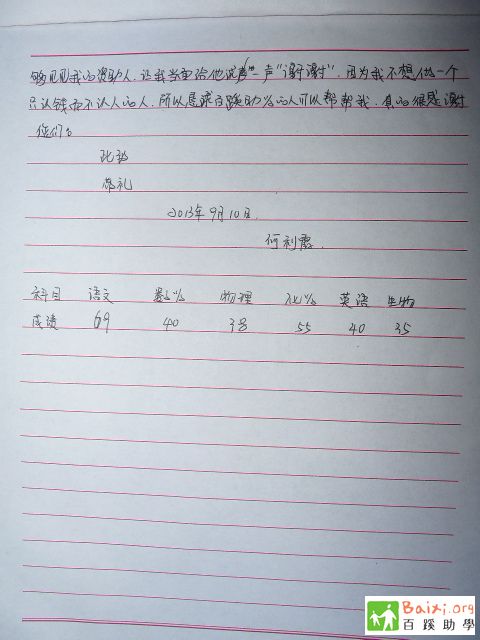 够见见我的资助人,让我当面给他说声一声"谢谢谢".因为我不想做一个
只认钱而不认人的人.所以恳求百蹊助学的人可以帮帮我.真的很感谢
您们。
此致
敬礼
2013年9月10日.
何利霞.
科目 语文 数学 物理 化学 英语 生物
成绩 69 40 38 55 40 35
Baixi.org
百蹊助學